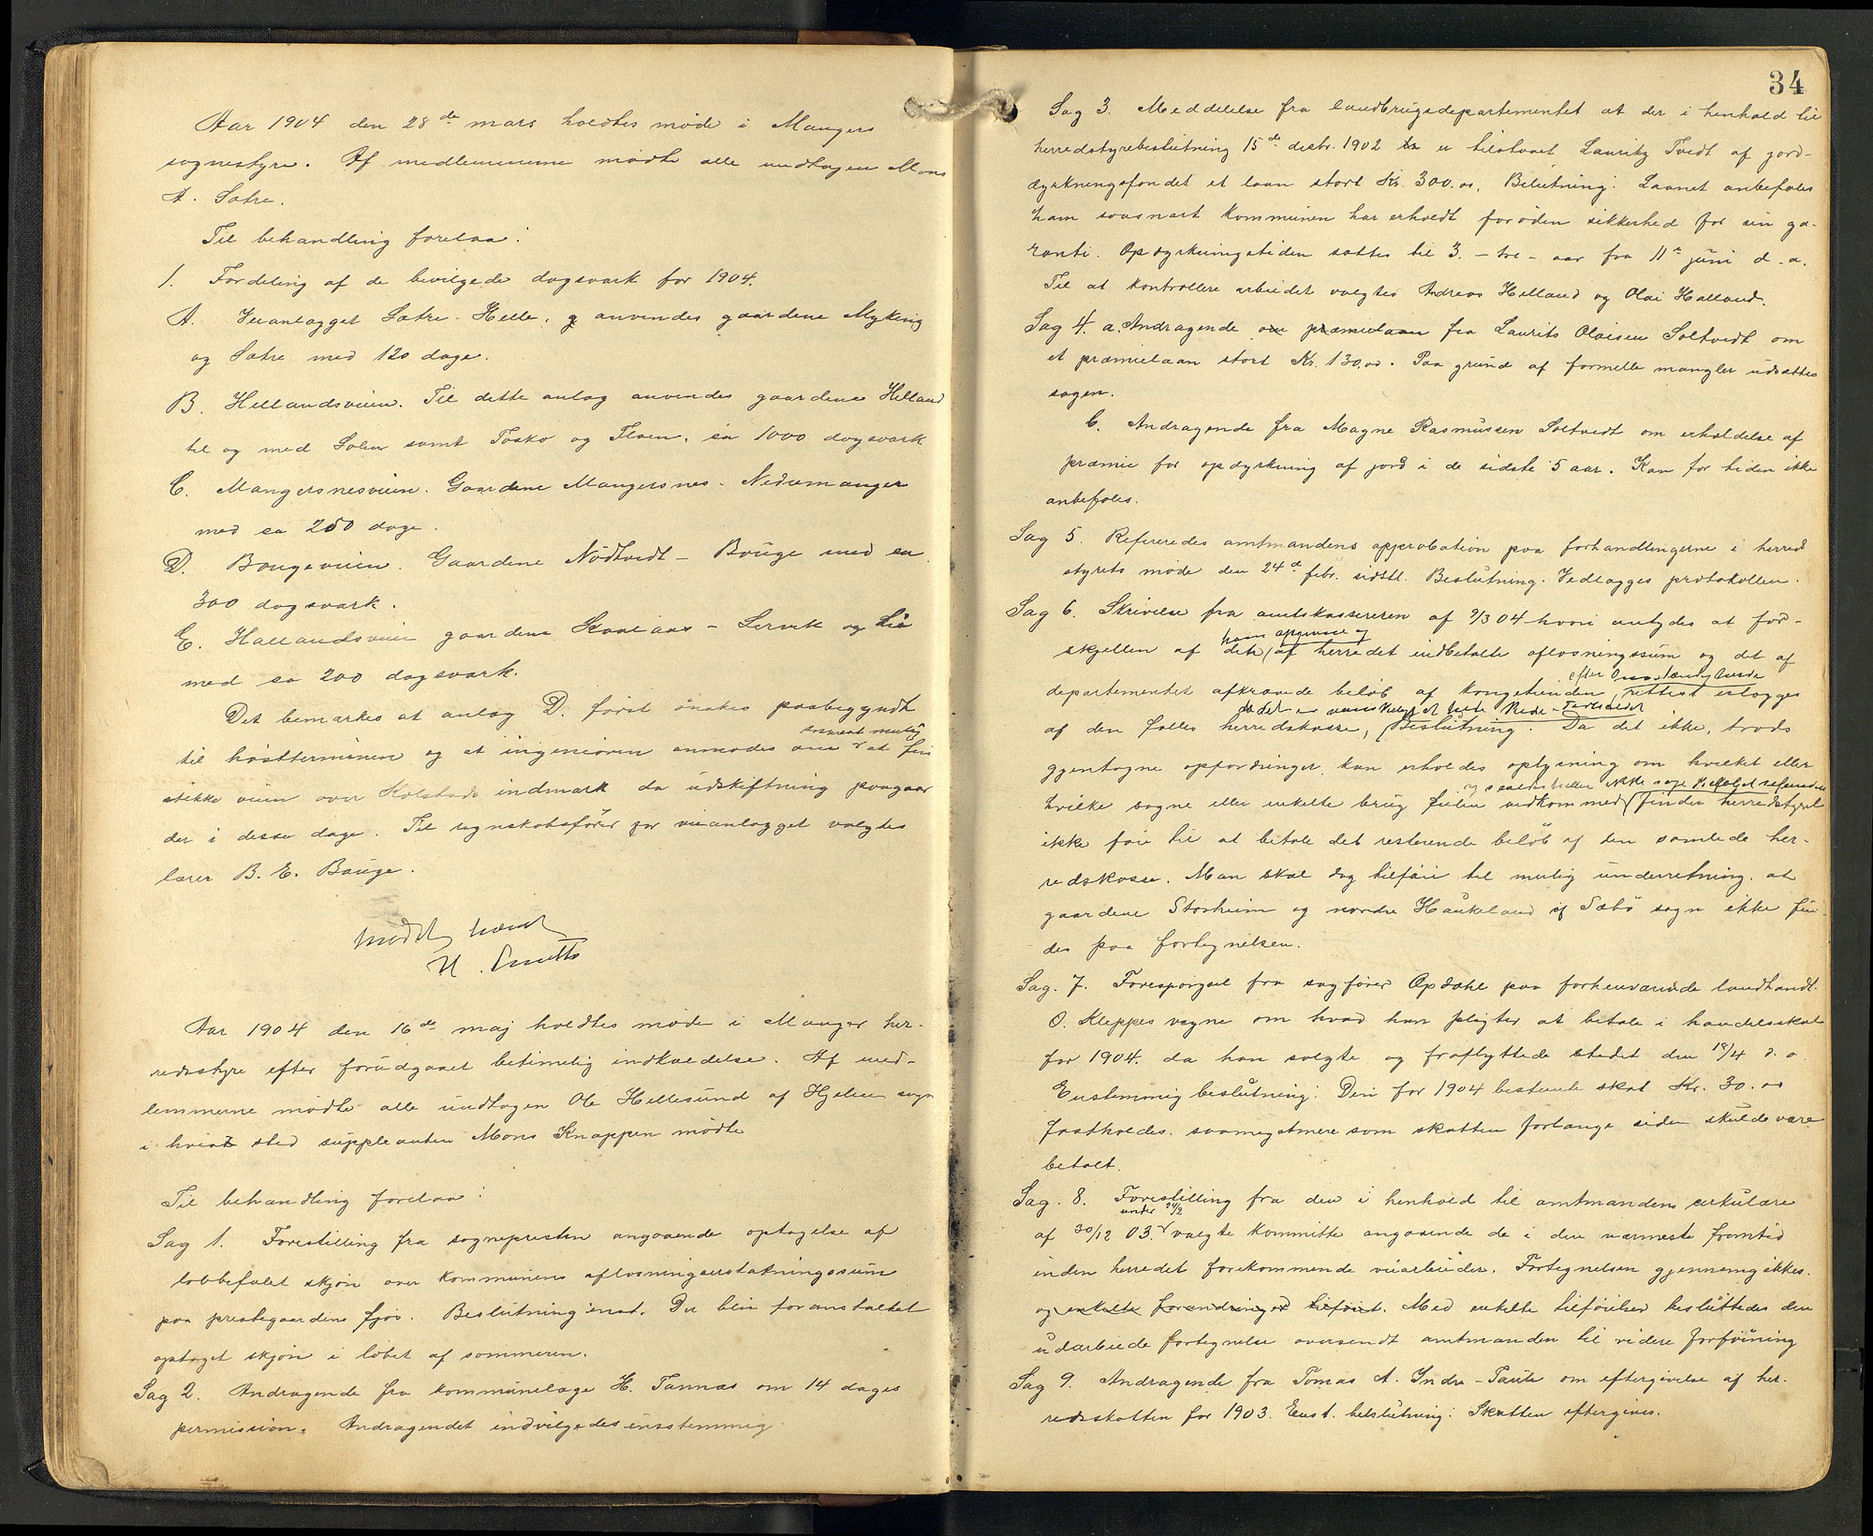 Aar 1904 den 28de mars holdtes møde i Mangers
sognestyre. Af medlemmerne mødte alle undtagen Mons
A. Sætre.
Til behandling forelaa:
1. Fordeling af de bevilgede dagsværk for 1904.
A. Veianlægget Sætre - Helle, anvendes gaardene Myking
og Sætre med 120 dage.
B. Hellandsveien. Til dette anlæg anvendes gaardene Helland
til og med Solem samt Toska og Floen, ca 1000 dagsværk
C. Mangersnesveien. Gaardene Mangersnes - Nedremanger
med ca 250 dage.
D. Baugeveien. Gaardene Nödtvedt - Bauge med ca
300 dagsværk.
E. Hallandsveien gaardene - Lervik og Lie
med ca 200 dagsværk.
Det bemærkes at anlæg D. først ønskes paabegyndt
snarest mulig
til høstterminen og at ingeniøren anmodes om at
stikke veien over indmark da udskiftning paagaar
der i disse dage. Til regnskabsfører for veianlægget valgtes
lærer B. E. Bauge.
Mødet hævet
Aar 1904 den 16de maj holdtes møde i Manger her-
redsstyre efter forudgaaet betimelig indkaldelse. Af med-
lemmerne mødte alle undtagen Ole Hellesund af Hjelme sogn
i hvis sted suppleanten Mons Knappen mødte
Til behandling forelaa:
Sag 1. Forestilling fra sognepresten angaaende optagelse af
lovbefalet skjøn over kommunens afløsningserstatningssum
paa prestegaardens fjøs. Beslutning enst. Der blir foranstaltet
optaget skjøn i løbet af sommeren.
Sag 2. Andragende fra kommunelæge H. Tannæs om 14 dages
permission. Andragendet indvilgedes enstemmig
34
Sag 3. Meddelelse fra landbrugsdepartementet at der i henhold til
herredstyrebeslutning 15de decbr. 1902 er tilstaaet Lauritz Tvedt af jord-
dyrkningsfondet et laan stort Kr. 300.00. Beslutning: Laanet anbefales
ham saasnart kommunen har erholdt forøden sikkerhed for sin ga-
ranti. Opdyrkningstiden sættes til 3. - tre - aar fra 11te juni d. a.
Til at kontrollere arbeidet valgtes Andreas Helland og Olai Halland.
Sag 4. a. Andragende om præmielaan fra Laurits Olaisen Soltvedt om
et præmielaan stort Kr. 130.00. Paa grund af formelle mangler udsættes
sagen.
b. Andragende fra Magne Rasmussen Soltvedt om erholdelse af
præmie for opdyrkning af jord i de sidste 5 aar. Kan for tiden ikke
anbefales.
Sag 5. Refereredes amtmandens approbation paa forhandlingerne i herred
styrets møde den 24de febr. sidstl. Beslutning. Vedlægges protokollen.
Sag 6. Skrivelse fra amtskassereren af 9/3 04 hvori antydes at for-
ham opgivne og
skjellen af det af herredet indbetalte afløsningssum og det af
efter Omstændighederne
departementet afkrævede beløb af kongetienden, rettest erlægges
af den fælles herredskasse, Beslutning. Da det ikke, trods
gjentagne opfordringer, kan erholdes oplysning om hvilket eller
hvilke sogne eller enkelte brug feilen vedkommer finder herredstyret
ikke føie til at betale det resterende beløb af den samlede her-
redskasse. Man skal dog tilføie til mulig underretning, at
gaardene Storheim og nordre Haukeland af Sæbö sogn ikke fin-
des paa fortegnelsen.
Sag. 7. Forespørgsel fra sagfører Opdahl paa forhenværende landhandl.
O. Kleppes vegne om hvad han pligter at betale i handelsskat
for 1904. da han solgte og fraflyttede stedet den 18/4 d. a
Enstemmig beslutning: Den for 1904 bestemte skat Kr. 30.00
fastholdes. saameget mere som skatten forlængst siden skulde være
betalt.
Sag. 8. Forestilling fra den i henhold til amtmandens cirkulære
under 24/2
af 30/12 03. valgte kommitte angaaende de i den nærmeste fremtid
inden herredet forekommende veiarbeider. Fortegnelsen gjennemgikkes.
og enkelte forandringer tilføiet. Med enkelte tilføielser besluttedes den
udarbeide fortegnelse oversendt amtmanden til videre forføining
Sag 9. Andragende fra Tomas A. Indre - Taule om eftergivelse af her-
redsskatten for 1903. Enst. beslutning: Skatten eftergives.